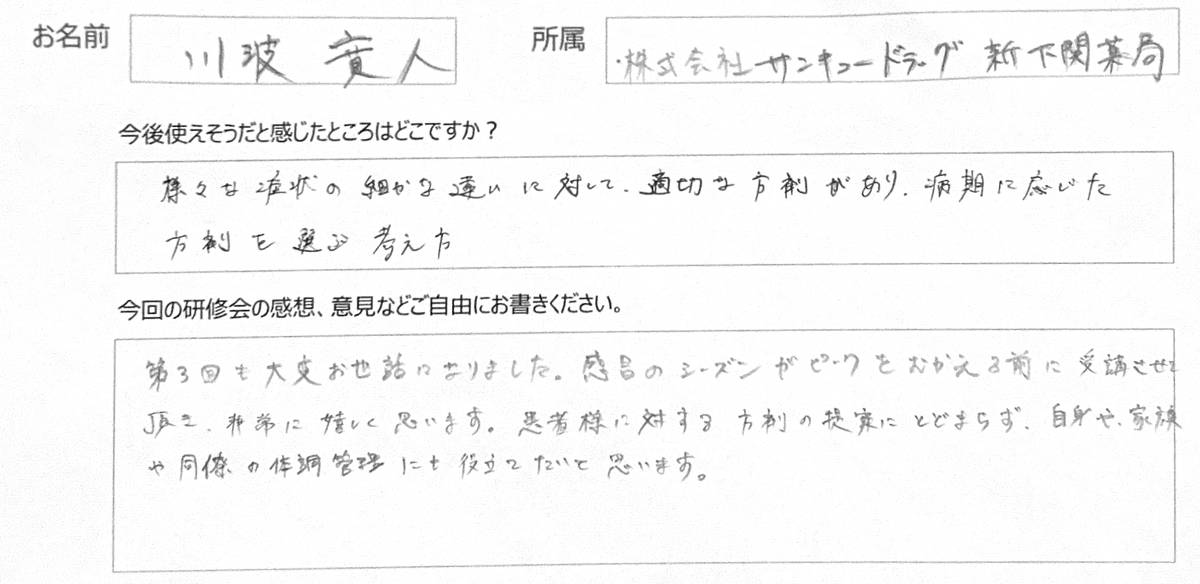 お名前 川波 貴人 所属 株式会社サンキュードラッグ 新下関薬局
今後使えそうだと感じたところはどこですか？
様々な症状の細かな違いに対して、適切な方剤があり、病期に応じた
方剤を選ぶ考え方
今回の研修会の感想、意見などご自由にお書きください。
第3回も大変お世話になりました。感冒のシーズンがピークをむかえる前に受講させて
頂き、非常に嬉しく思います。患者様に対する方剤の提案にとどまらず、自身や、家族
や同僚の体調管理にも役立てたいと思います。